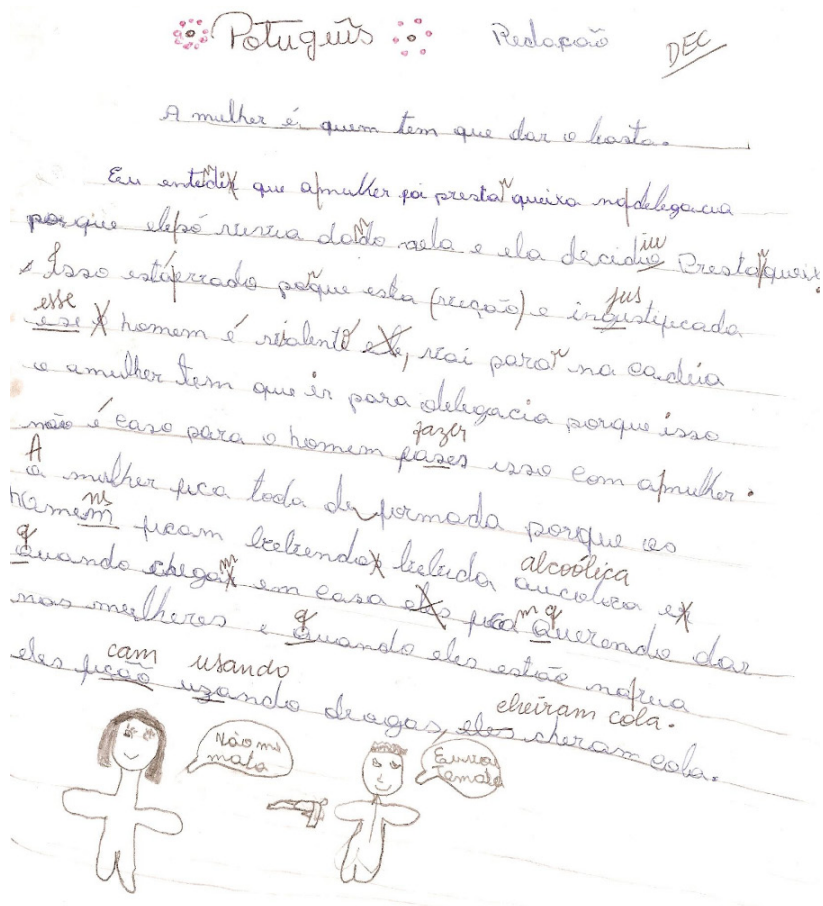 Potuguês Redaçaõ DEC
A mulher é quem tem que dar o basta.
Eu entedi que amulher foi presta queixa nadelegacia
porque elesó vivia dado nela e ela decidiu Presta queix
Isso estáerrado poque esta (reação) e injustificada
esse homem é violento, vai para na cadeia
e amulher tem que ir para delegacia porque isso
fazer
não é caso para o homem fases isso com amulher.
A mulher fica toda de formada porque os
homem ns ficam bebendo bebida alcoólica
quando chega em casa
nas mulheres e quando eles estão narua
cam usando cheiram cola.
eles ficão uzando drogas, eles cheram cola.
Não me
mata
Eu vou
Temata